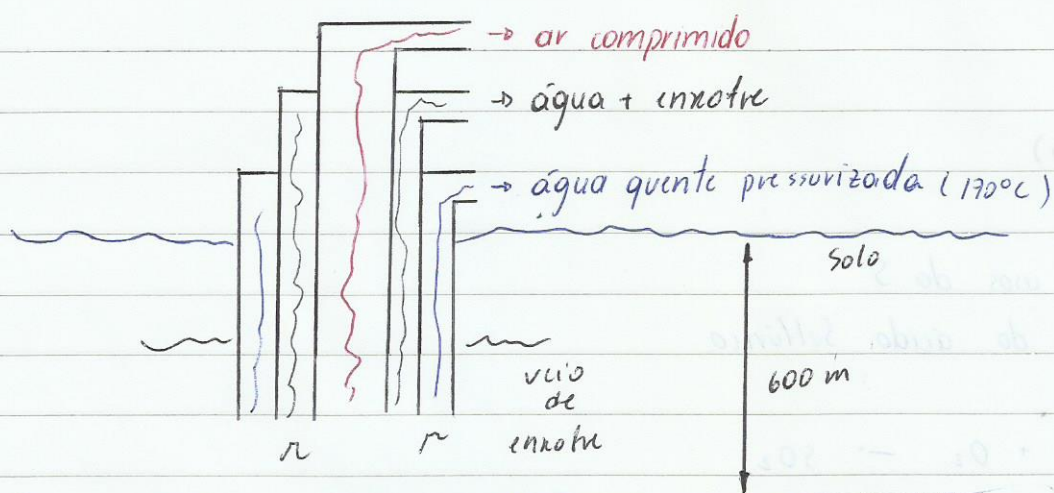 → ar comprimido
→ água + enxofre
→ água quente pressurizada (170°C)
solo
600 m
veio
de
enxofre